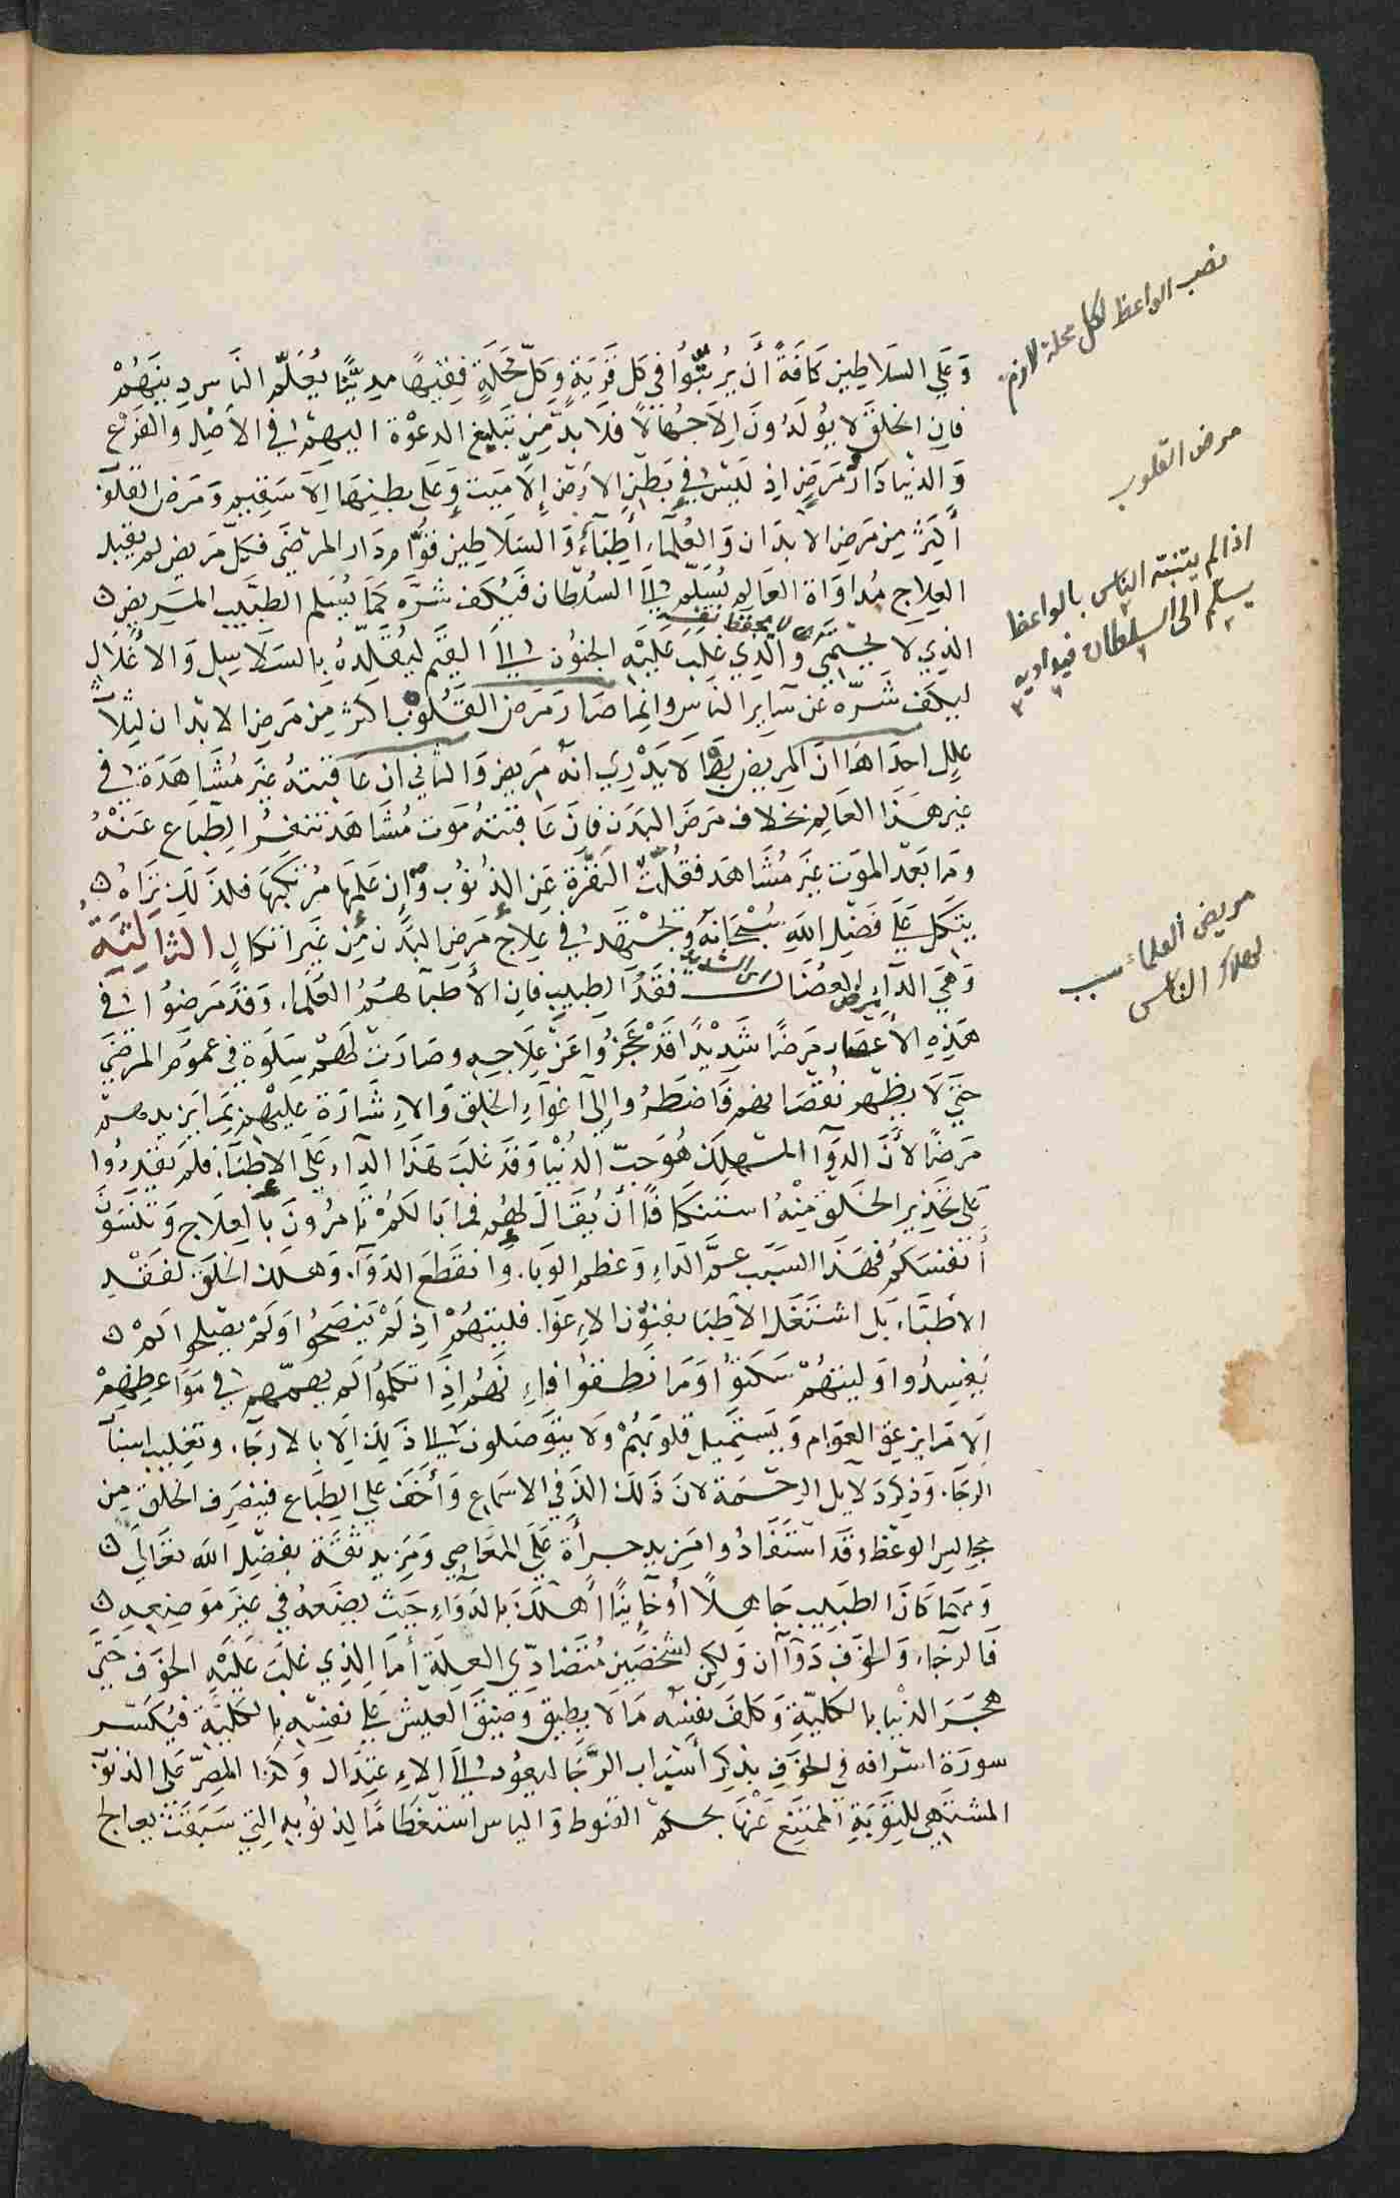 نصب الواعظ لكل محلة لازم
وَعَلَي السَلاطِين كَافَةً أَن يُرَتِّبُوُا في كل قَريَةٍ وَكلّ مَحَلَةٍ فِقيهًا متديّنًا يُعَلّم الناسَ دينَهُمْ
فان الخلقَ لا يُولَدُونَ اِلاَ جُهَّالاً فلَا بدَّ مِن تبَليغ الدعوْة اليهمْ في الأَصْل والفَرع
مرض القلوب
وَالدنيا دَار مَرَضٍ اذ ليَس في بَطْنِ الارض اِلاّ مَيت وَعَلَي بطنِهَا اِلاَ سَقِيم وَمَرَض القلوب
أكثَر مِن مَرضِ الابدَان وَالعُلماء أطِبّاءُ وَالسَلاطِين قوَّام دَار المرضَي فكل مَريض لم يقبل
اذا لم يتنبه الناس بالواعظ
يسلم الى السلطان فيداويه
العِلاج مُداوَاة العَالم يُسَلّم الَي السُلطان فيُكَف شَرّه كَمَا يُسَلم الطبَيب المَريض
لا يحفظ نفسه
الذِي لا يحتَمِي وَالذِي غلِبَ عَلَيْه الجنوُن الَي القيّم ليُقيّدهُ بالسَلاسِل وَالأغلال
ليكَف شَرّه عَن سَاير الناس وانما صَار مَرَض القلُوب اكثر مِن مَرضِ الابَدان لثِلاَث
عِلل احدَاهَا ان المريض بهَا لاَ يَدْرِي انهُ مَريض وَالثاني ان عَاقبَتهُ غيرَ مُشَاهَدَة في
غير هَذا العَالم بخلاف مَرض البَدَن فان عَاقبَتهُ مَوت مُشَاهَد تنفرُ الطبَاع عَنهُ
ومَا بَعْد الموَت غَير مُشَاهَد فقلّت النفرة عَن الذُنوُب وان عَلِمَهَا مُرتكبهَا فلذَلَك ترَاهُ
يتكل عَلَي فَضْل الله سُبْحَانهُ ويجْتَهد في عِلاج مَرض البَدَن مِن غَير اتكال الثاَلثَة
مريض العلماء سبب
لهلاك الناس
وَهيَ الدَآء العُضَال فَقدُ الطبيب فان الأَطبآء هُمُ العُلمَاء وَقدْ مَرضوُا في
هَذِه الأعصَار مَرضًا شَدِيْدًا قَدْ عَجزوُا عَنْ عِلاجِهِ وصَارَت لهمْ سَلوَة في عموُم المرضَي
حَتي لاَ يظهر نُقصَانهم فَاضطرُوا إلَي اغوَاء الخلق وَالاِشَارَة عَليهْم بمَا يزيدهمْ
مَرضًا لأنَ الدَآء المهلِك هُوَ حبّ الدُنْيَا وَقدَ غلَبَ هَذَا الدَاء عَلَى الاطِبَآء فلم يَقدرُوا
عَلَى تحذِير الخلق مِنْهُ استنكَافًا أنْ يُقَالَ لهُم فما بَالكُمْ تأمرُونَ بالعِلاج وَتنسَوْنَ
أنفسَكُمْ فهَذا السَبَب عمَّ الدَاء وَعظم الوَبا. وَانقطَع الدَوآء. وَهلك الخلق لفقْد
الأطبَّاء. بل اشتَغَل الأطِبَا بفنوُن الاِغوَا. فليتهُمْ اذ لَمْ يَنصَحُوا وَلَمْ يصْلحوا لَمْ
يَفسِدُوا وَليتهُمْ سَكتوُا وَمَا نطقوُا فانهُم اذَا تكلمُوا لَم يهمّهم في مَوَاعِظِهمْ
اِلا مَا يزعق العوَام وَيستميل قلوَبهُمْ وَلا يتوَصّلون الَي ذَلك الِا بالارجَاء. وتغليب اسباب
الرجَا. وَذِكر دَلايل الرحْمَة لانَ ذَلكَ الذّ في الاسمَاع وَأخف عَلي الطِبَاع فينصَرف الخلق مِن
مجالِس الوعْظ وَقد اسْتفَادُوا مَزيد جُرأة عَلَى المعَاصِي وَمَزيد ثقة بفضْل الله تعَالَي
وَمهمَا كانَ الطبيب جَاهلاً أوْ خآينًا أهلكَ بالدَوَاء حَيث يضعهُ في غير مَوضعِهِ
فَالرجَاء وَالخوْف دَوآان وَلكِن لشَخصَين مُتضادّي العلَّة أمَا الذِي غلَبَ عَلَيْه الخوْف حَتي
هجَرَ الدنْيَا بالكليَّةِ وَكلفَ نفسَه مَا لا يطِيق وَضيَّق العيش عَلي نفسِه بالكليَّة فيُكسَر
سورَة اسْرافه في الخوْف بذِكر أسْبَاب الرَّجَا ليعُود الَي الاِعتِدَال وَكذا المُصِرّ عَلَى الذنوُب
المشتهِي للتوَبَةِ الممتنِع عَنهَا بحكم القنوُط وَالياس اسْتعظامًا لِذنوُبه التِي سَبَقتْ يعَالج